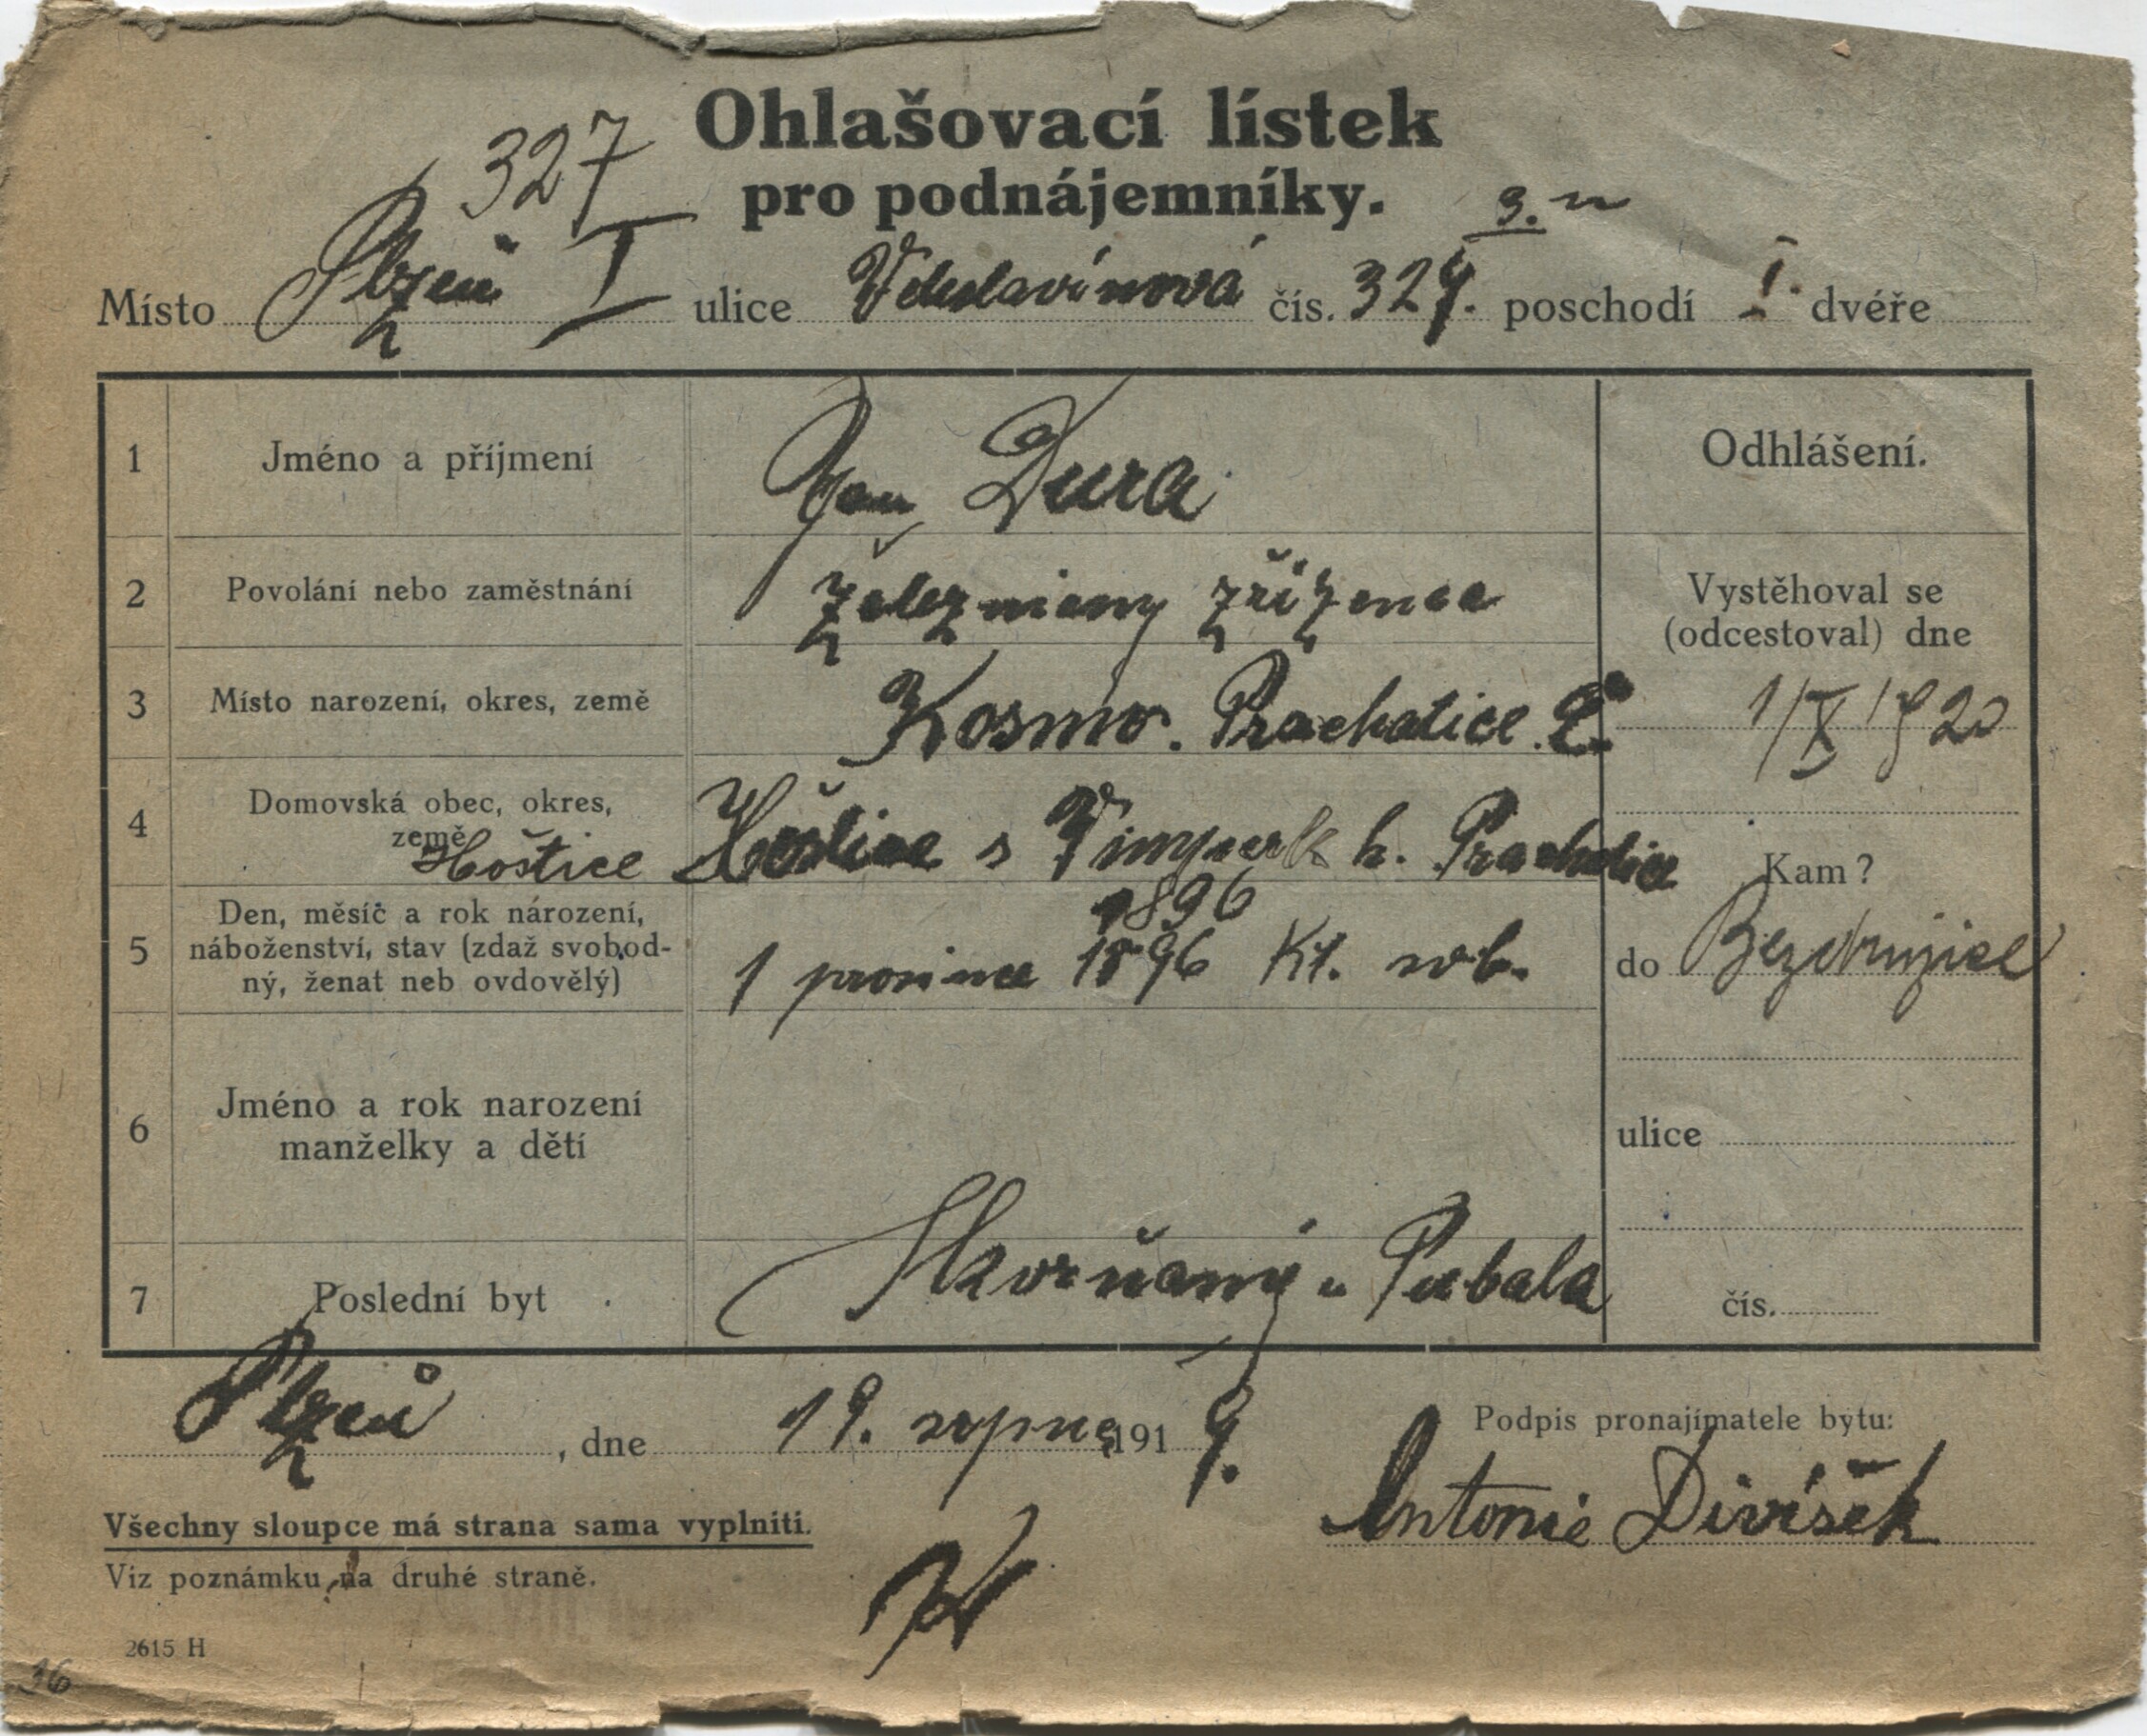 Ohlašovací lístek
327
pro podnájemníky.
3.
Místo Plzeň I ulice Veleslavínová čís. 327. poschodí I. dvéře
1 Jméno a příjmení Jan Dura Odhlášení.
2 Povolání nebo zaměstnání železniany zřízenec Vystěhoval se
(odcestoval) dne
3 Místo narození, okres, země Kosmo. Prachatice Č. 1/X 1920
4 Domovská obec, okres,
země Hoštice Hoštice s Vimperk h. Prachatice Kam?
1896
5 Den, měsíc a rok národení,
náboženství, stav (zdaž svobod-
ný, ženat neb ovdovělý) 1 prosince 1896 Kt. svb. do Bezdružice
6 Jméno a rok narození
manželky a dětí ulice
7 Poslední byt u Pubala čís.
Plzeň, dne 19. srpna 1919. Podpis pronajímatele bytu:
Antonie Divíšek
Všechny sloupce má strana sama vyplniti.
Viz poznámku na druhé straně.
2615 H
36